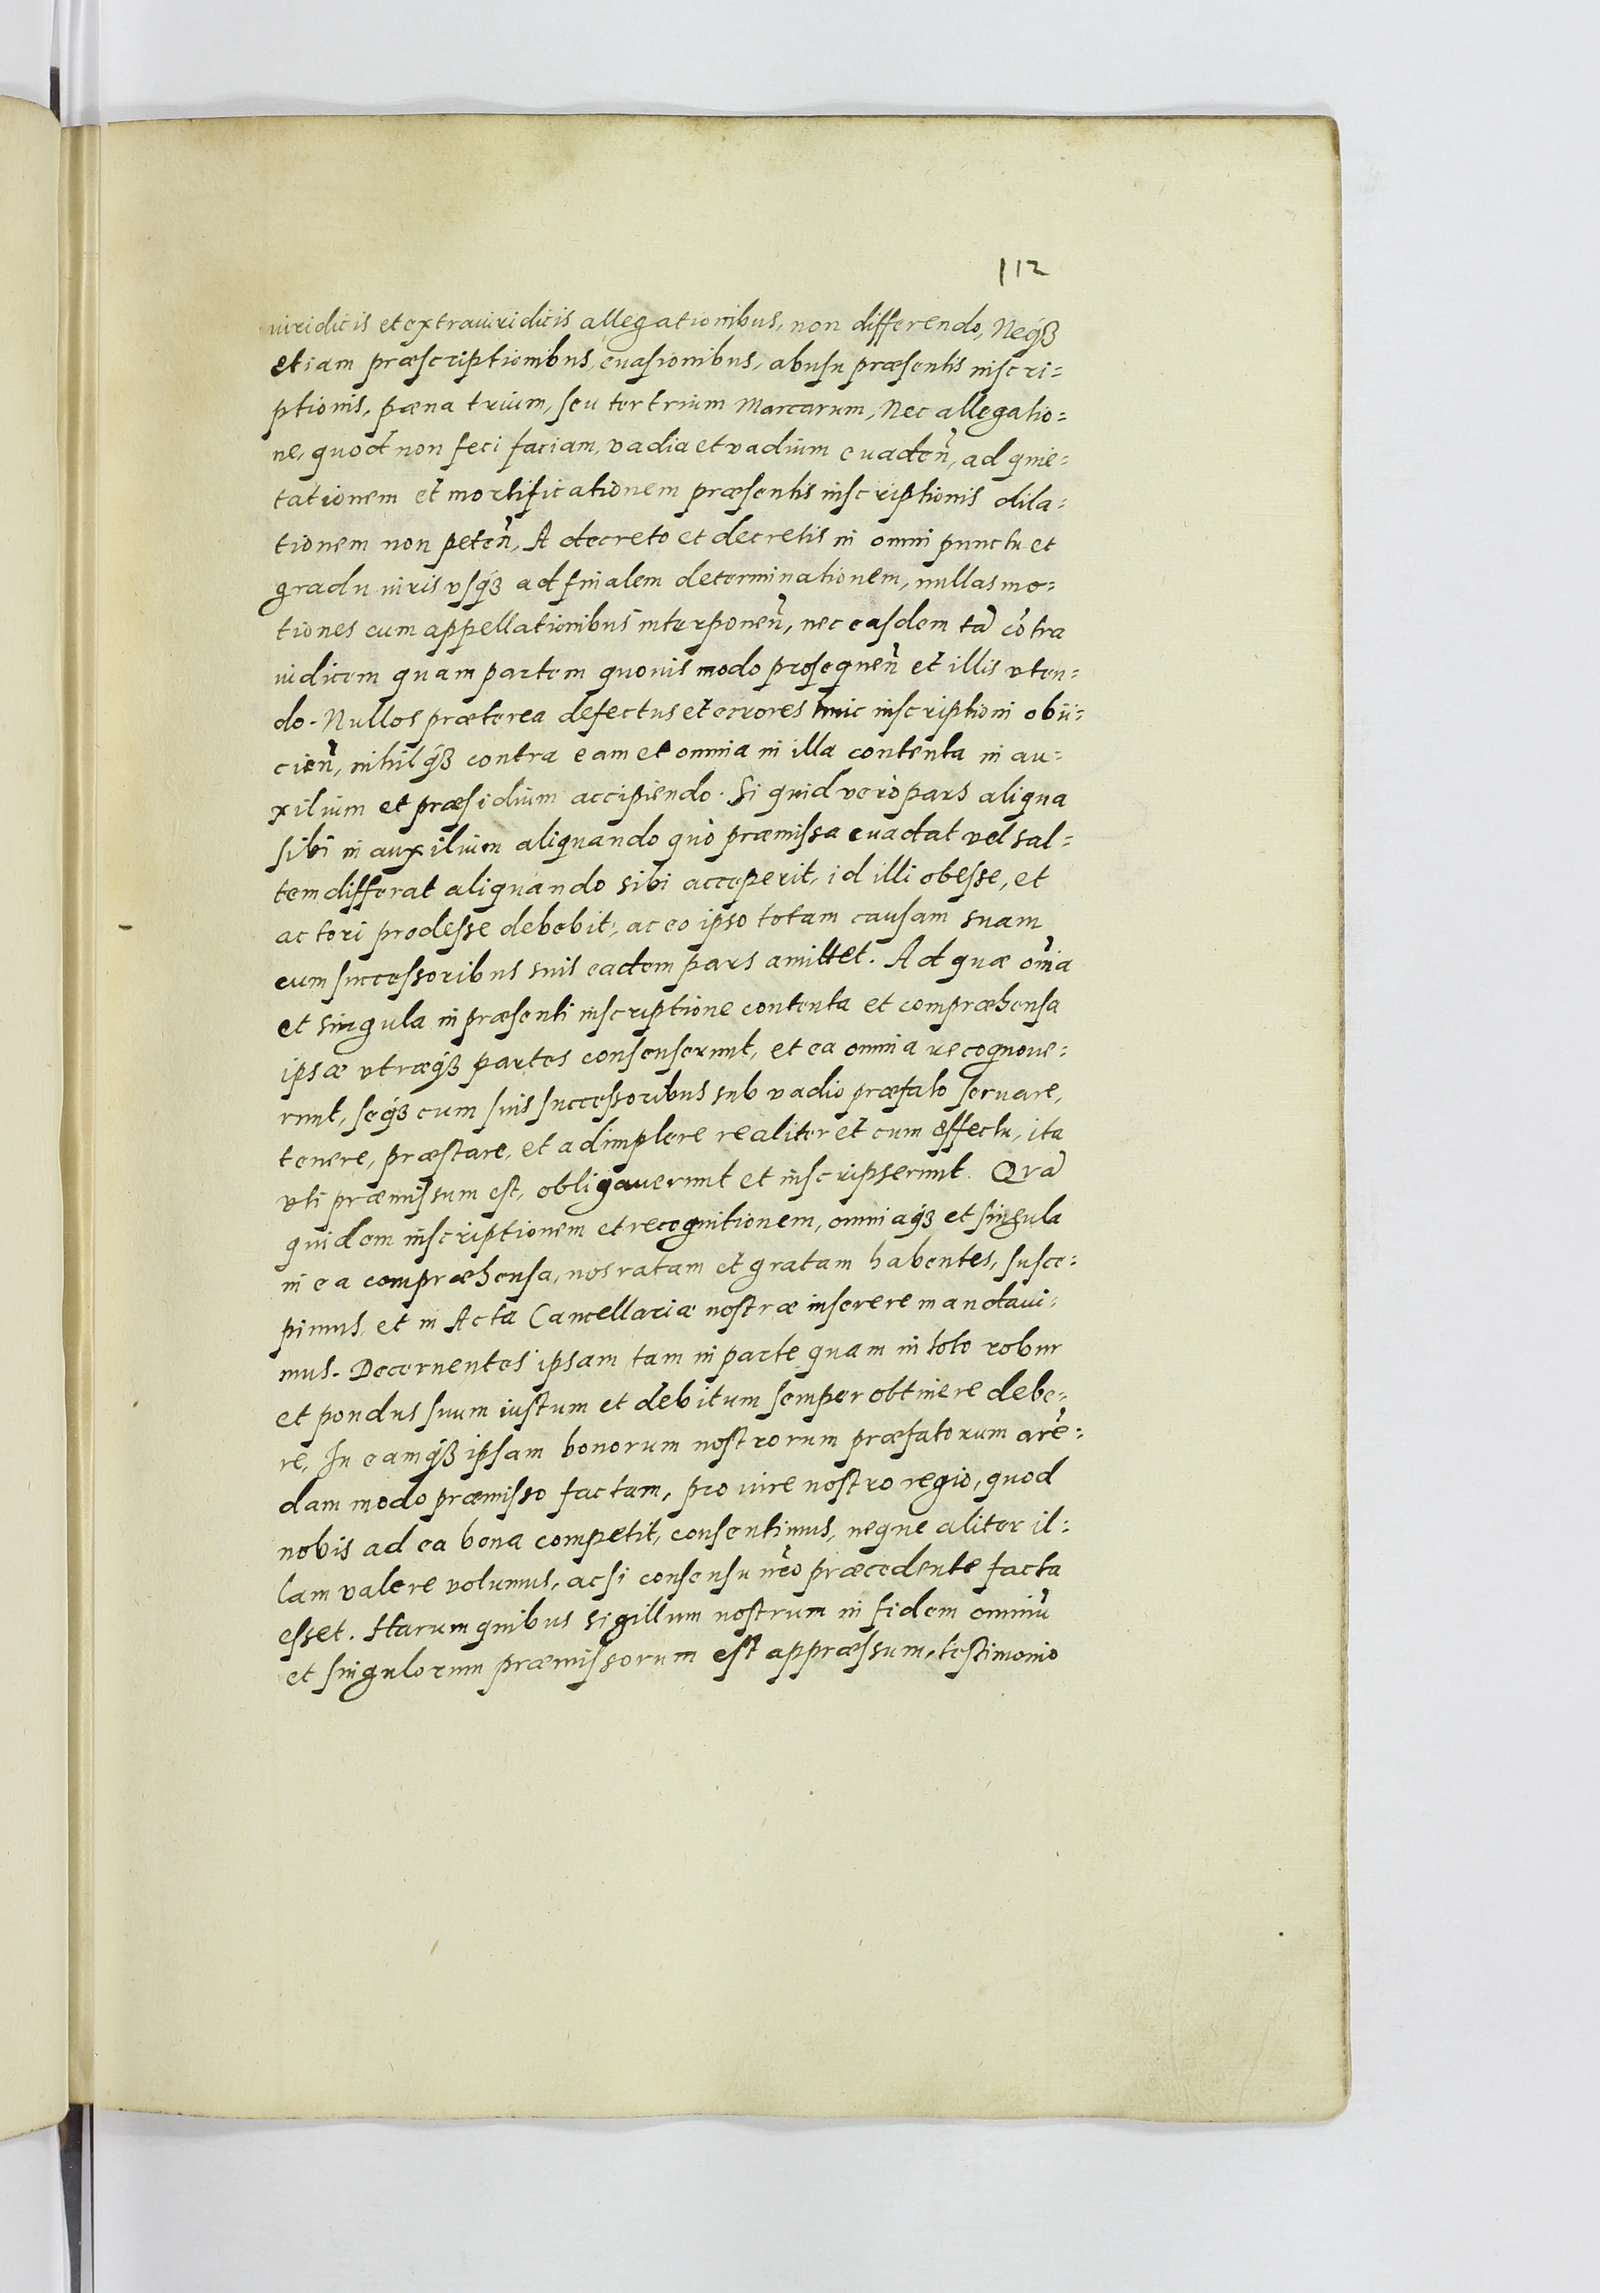 112
iuridicis et extraiuridicis allegationibus, non differendo, Neq́ꝫ
etiam præscriptionibus, euasionibus, abusu præsentis inscri=
ptionis, pœna trium, seu ter trium Marcarum, Nec allegatio=
ne, quod non feci faciam, vadia et vadium euaden̄, ad quie=
tationem et mortificationem præsentis inscriptionis dila=
tionem non peten̄, A decreto et decretis in omni punctu et
gradu iuris vsq́ꝫ ad finalem determinationem, nullas mo=
tiones cum appellationibus interponen̄, nec easdem tā cōtra
iudicem quam partem quouis modo prosequen̄ et illis vten=
do. Nullos præterea defectus et errores huic inscriptioni obii=
cien̄, nihilq́ꝫ contra eam et omnia in illa contenta in au=
xilium et præsidium accipiendo. Si quid verò pars aliqua
sibi in auxilium aliquando quò præmissa euadat vel sal=
tem differat aliquando sibi acceperit, id illi obesse, et
actori prodesse debebit, ac eo ipso totam causam suam
cum successoribus suis eadem pars amittet. Ad quæ om̄ia
et singula in præsenti inscriptione contenta et compræhensa
ipsæ vtræq́ꝫ partes consenserunt, et ea omnia recognoue=
runt, seq́ꝫ cum suis successoribus sub vadio præfato seruare,
tenere, præstare, et adimplere realiter et cum effectu, ita
vti præmissum est, obligauerunt et inscripserunt. Qvā
quidem inscriptionem et recognitionem, omniaq́ꝫ et singula
in ea compræhensa, nos ratam et gratam habentes, susce=
pimus, et in Acta Cancellariæ nostræ inserere mandaui=
mus. Decernentes ipsam tam in parte quam in toto robur
et pondus suum iustum et debitum semper obtinere debe=
re, In eamq́ꝫ ipsam bonorum nostrorum præfatorum arē=
dam modo præmisso factam, pro iure nostro regio, quod
nobis ad ea bona competit, consentimus, neque aliter il=
lam valere volumus, ac si consensu nr̄o præcedente facta
esset. Harum quibus sigillum nostrum in fidem omniū
et singulorum præmissorum est appræssum, testimonio